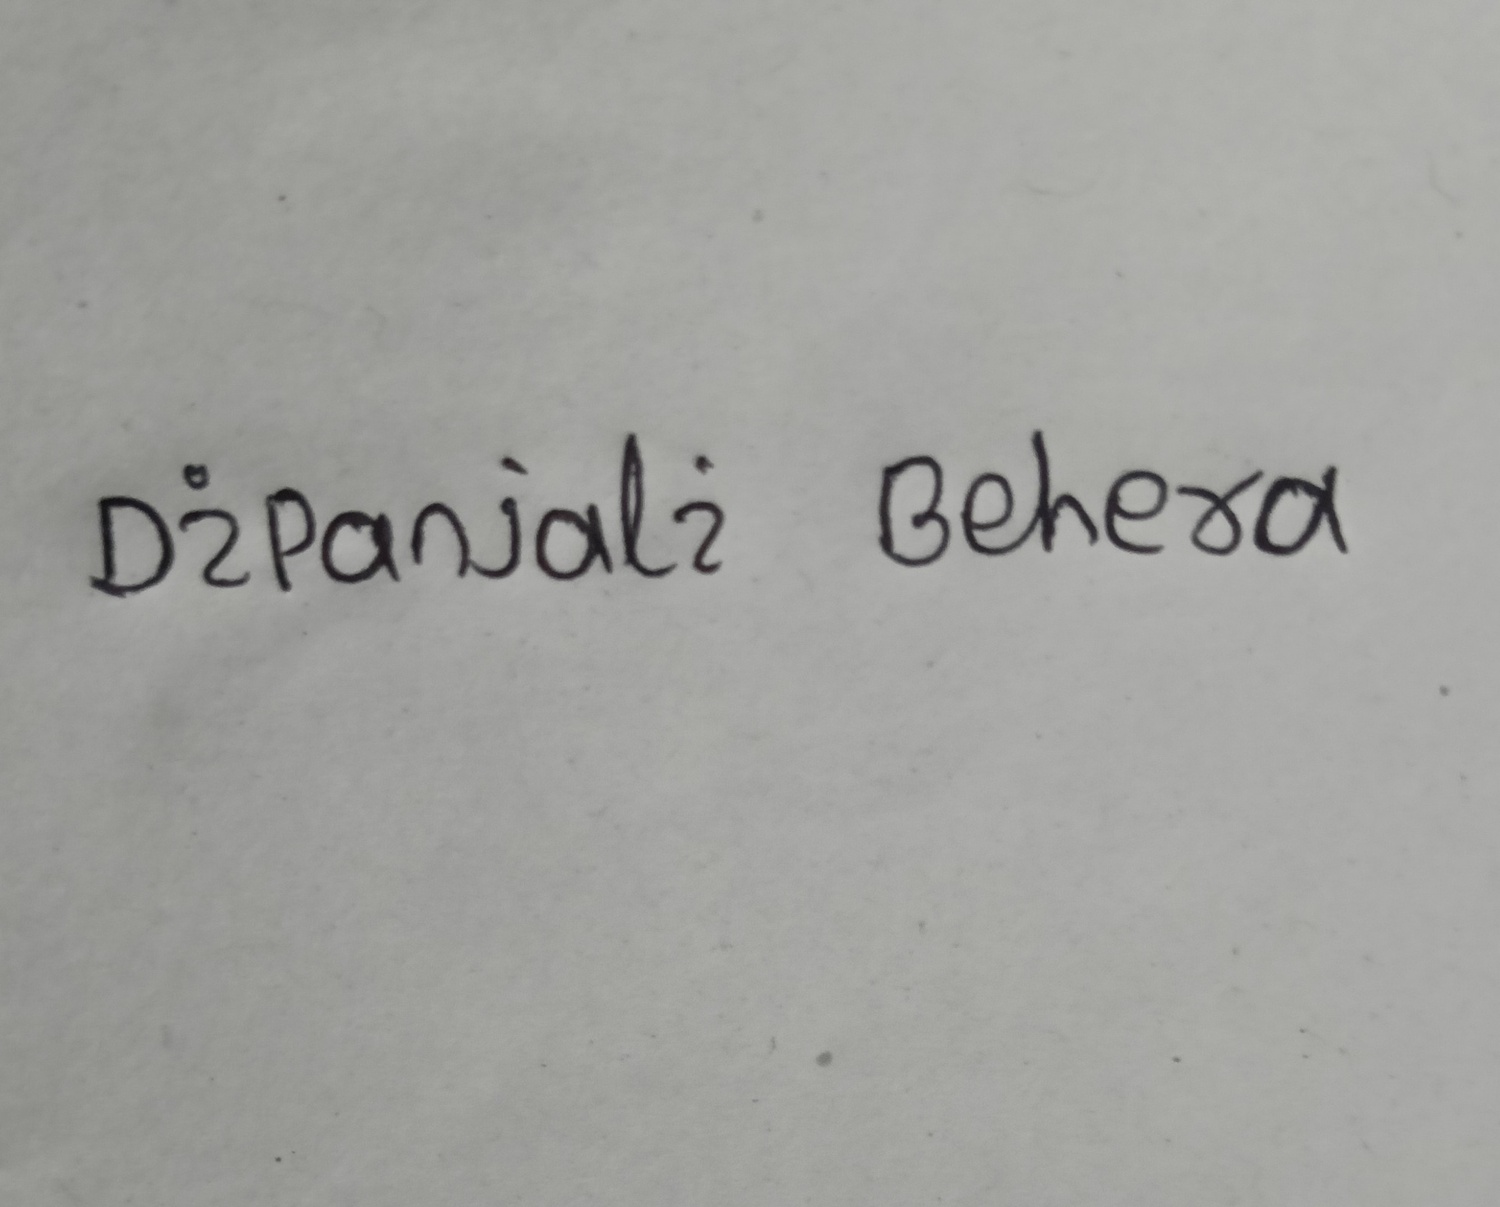 Dipanjali Behera